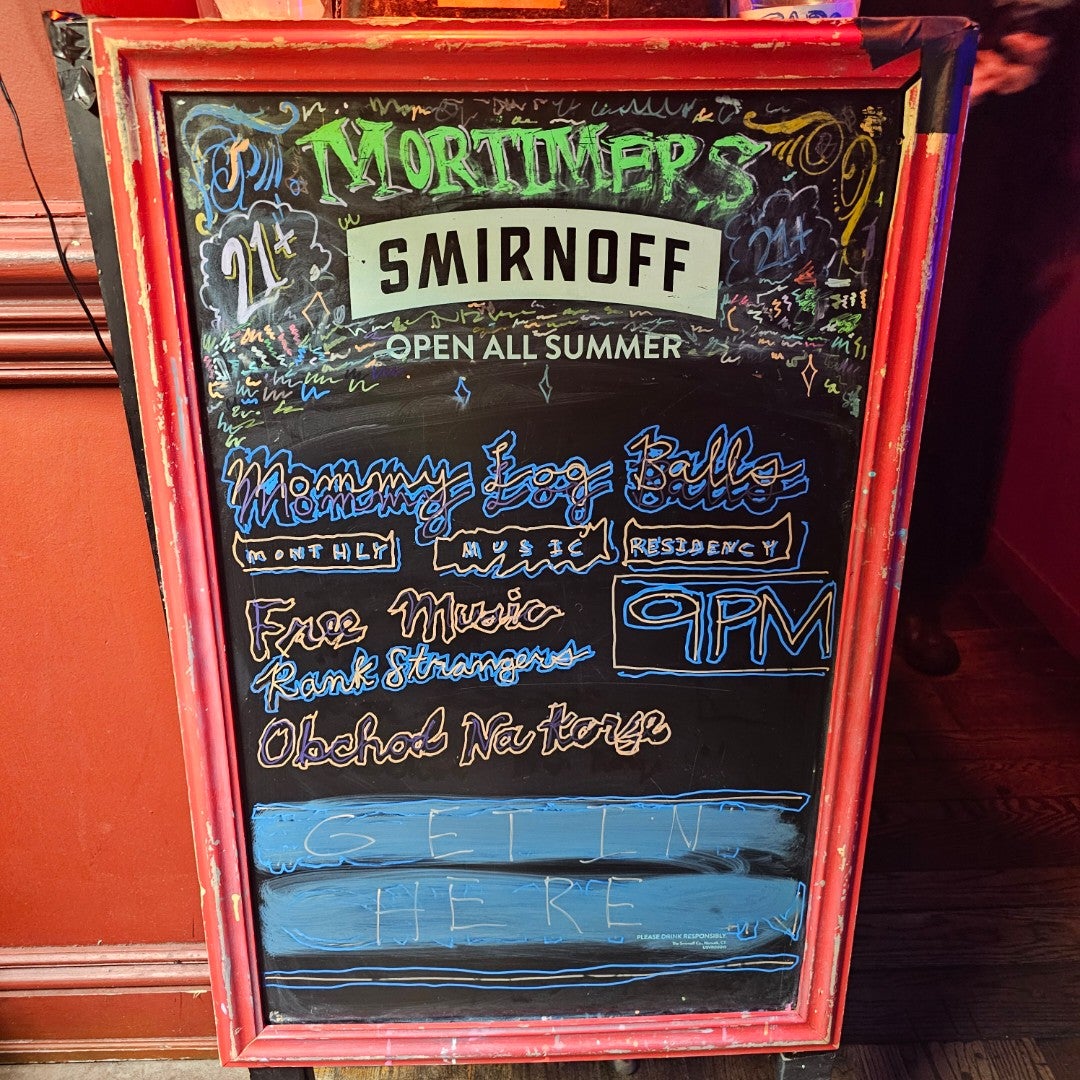 MORTIMERS
21+ 21+
SMIRNOFF
OPEN ALL SUMMER
Mommy Log Balls
MONTHLY MUSIC RESIDENCY
Free Music 9PM
Rank Strangers
Obchod Na Korze
GET IN
HERE
PLEASE DRINK RESPONSIBLY.